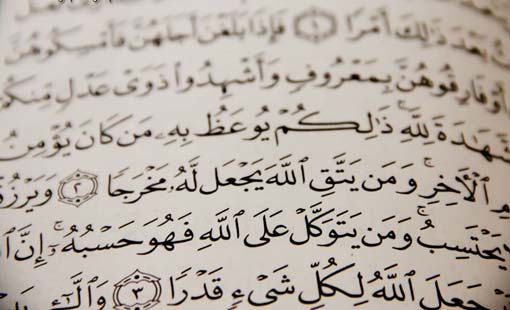 بَعْدَ ذَٰلِكَ أَمْرًا ١ فَإِذَا بَلَغْنَ أَجَلَهُنَّ فَأَمْسِكُوهُنَّ
أَوْ فَارِقُوهُنَّ بِمَعْرُوفٍ وَأَشْهِدُوا۟ ذَوَىْ عَدْلٍ مِّنكُمْ
شَّهَٰدَةَ لِلَّهِ ۚ ذَٰلِكُمْ يُوعَظُ بِهِۦ مَن كَانَ يُؤْمِنُ
ٱلْءَاخِرِ ۚ وَمَن يَتَّقِ ٱللَّهَ يَجْعَل لَّهُۥ مَخْرَجًا ٢ وَيَرْزُقْ
لَا يَحْتَسِبُ ۚ وَمَن يَتَوَكَّلْ عَلَى ٱللَّهِ فَهُوَ حَسْبُهُۥٓ ۚ إِنَّ
جَعَلَ ٱللَّهُ لِكُلِّ شَىْءٍ قَدْرًا ٣ وَٱلَّٰٓـِٔى